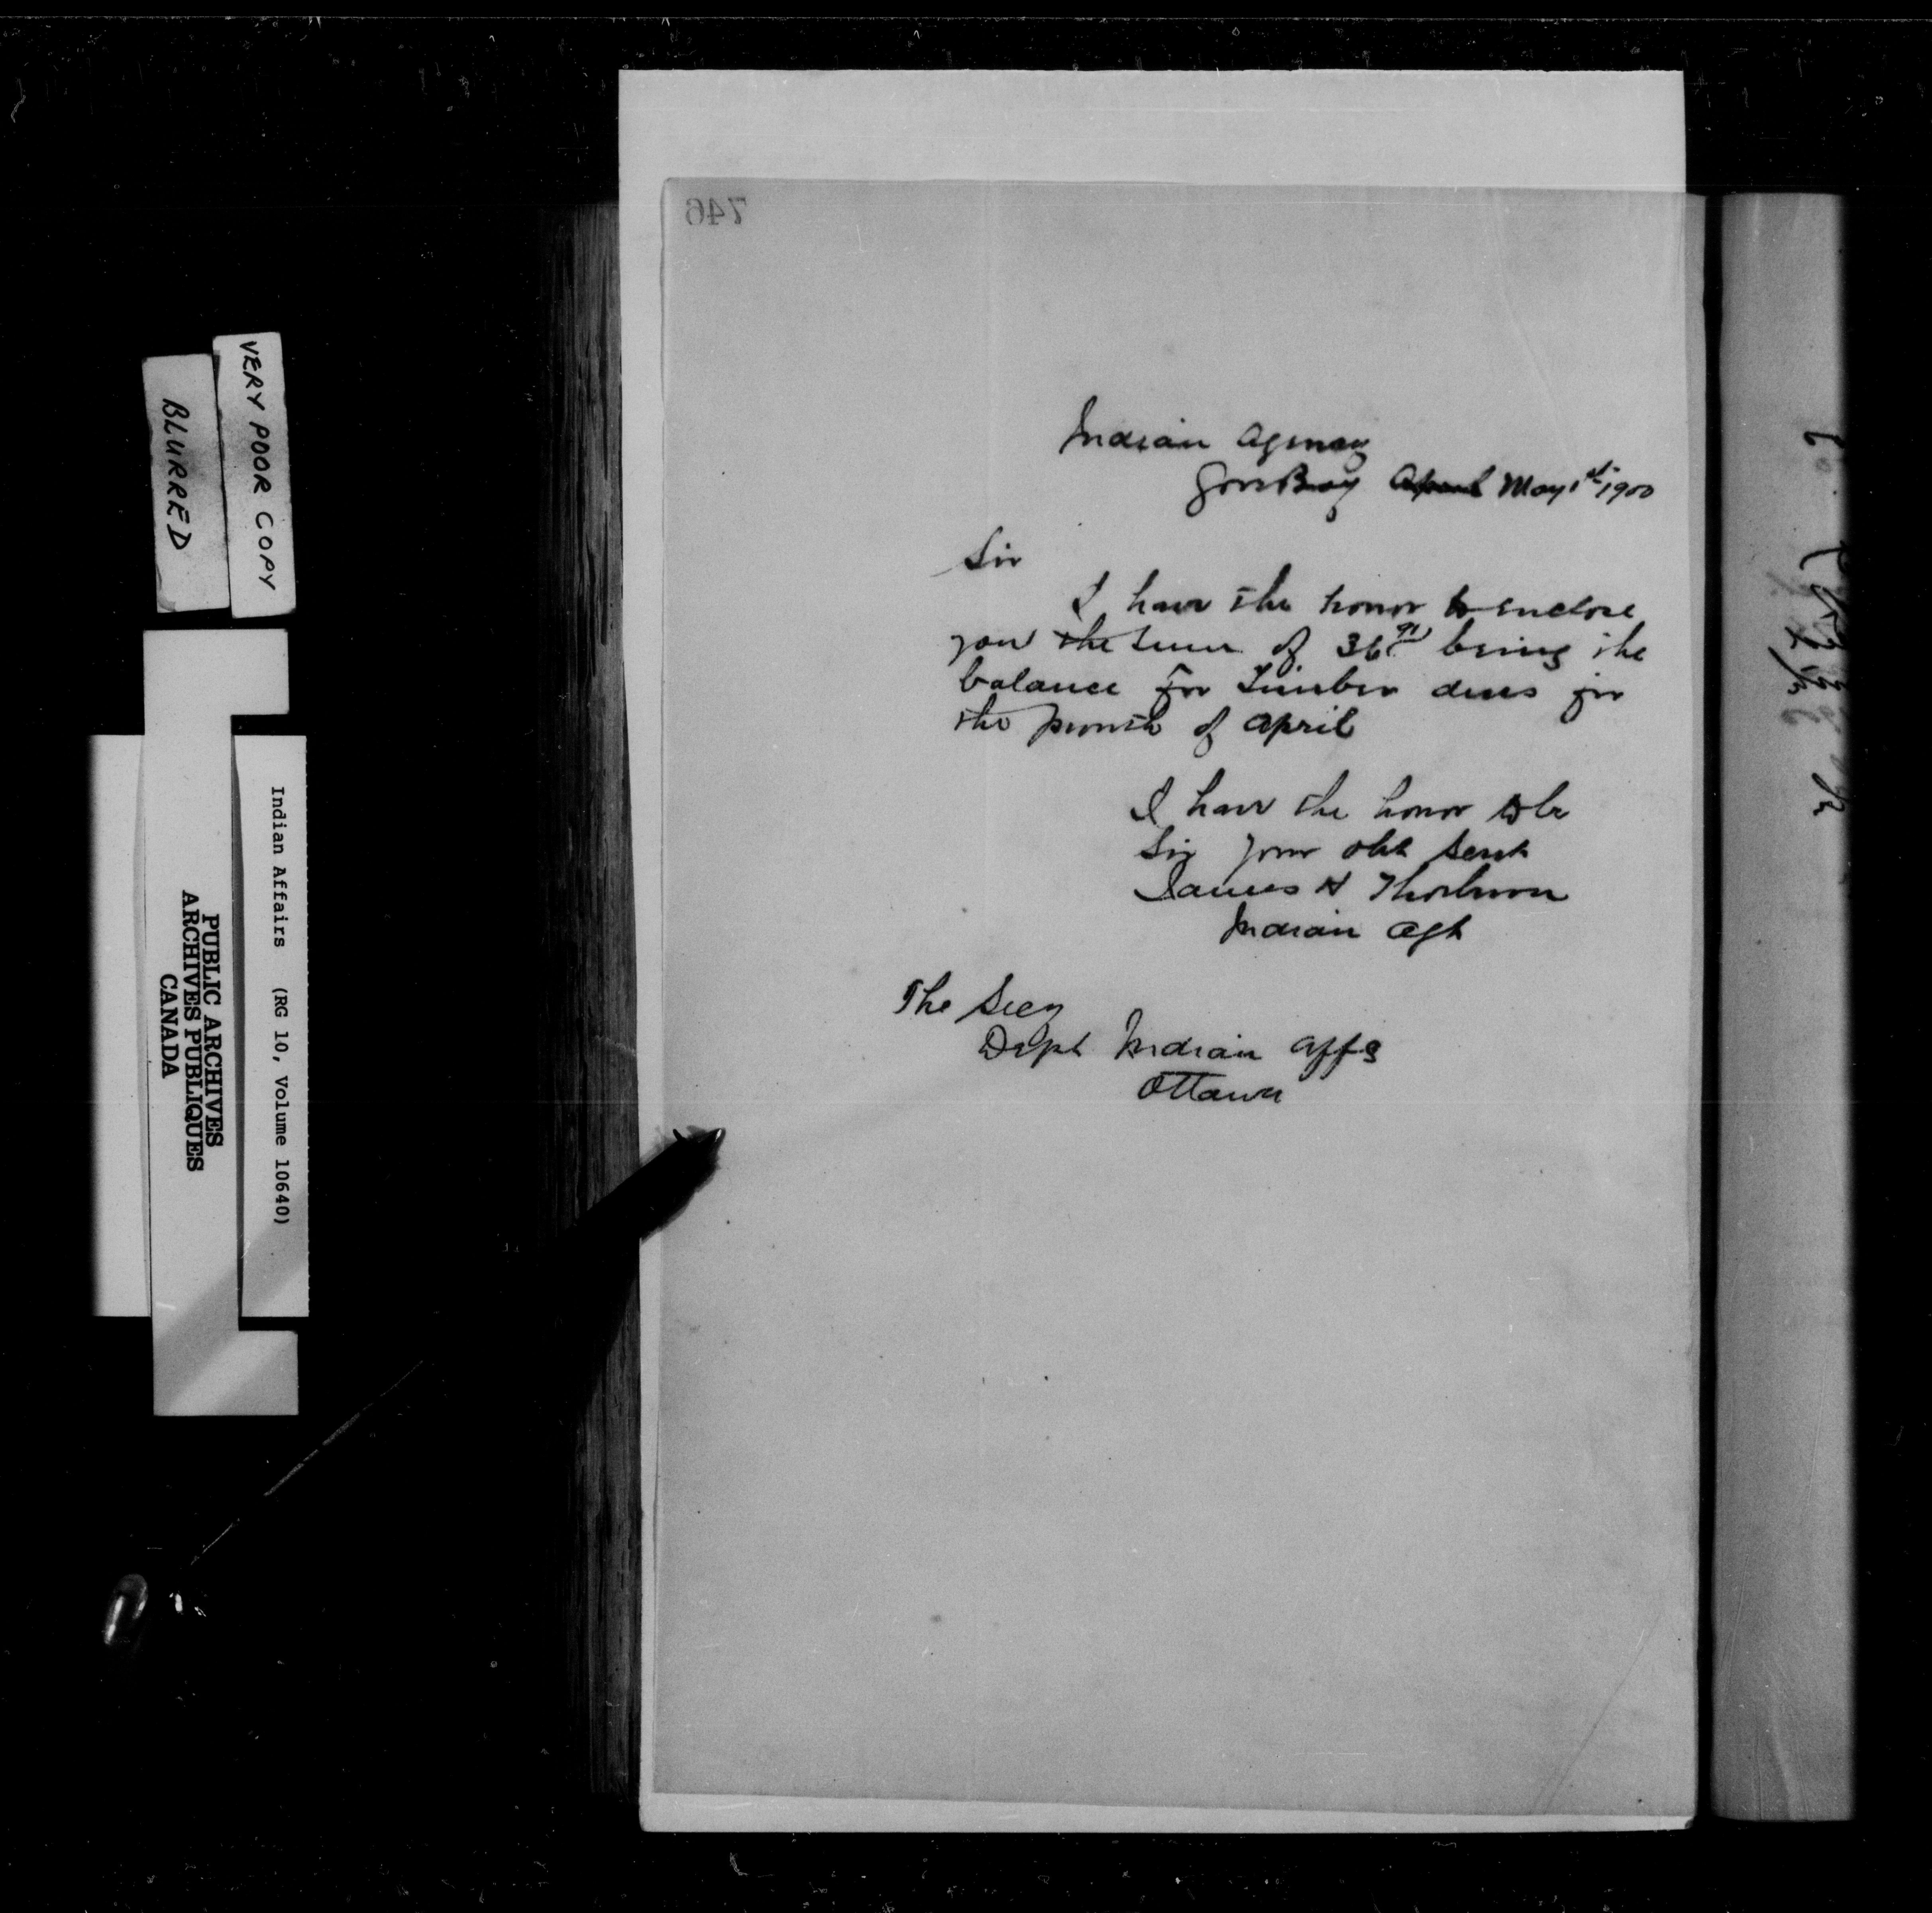 746
Indian Agency
Gore Bay April May 1st 1900
Sir
I have the honor to enclose
you the sum of 36 91 being the
balance for Timber dues for
the month of April
I have the honor to be
Sir your obt Servt
James H Thorburn
Indian Agt
The Secy
Dept Indian Affs
Ottawa
VERY POOR COPY
BLURRED
Indian Affairs (RG 10, Volume 10640)
PUBLIC ARCHIVES
ARCHIVES PUBLIQUES
CANADA